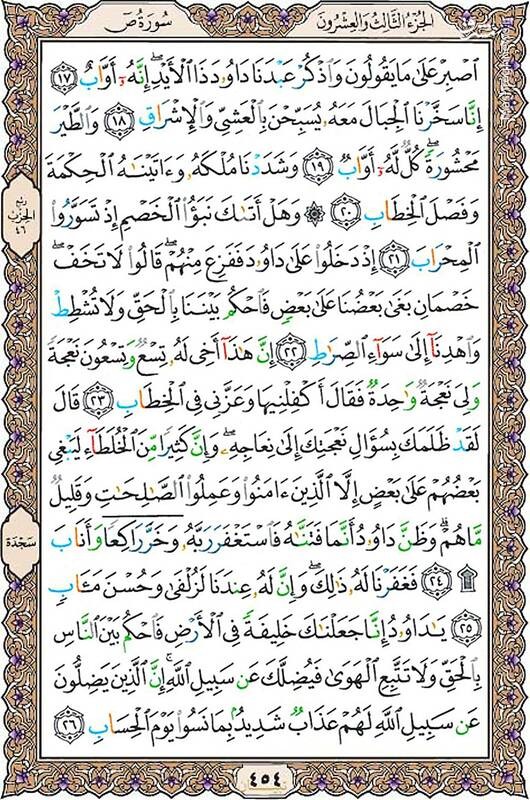 الجزء الثالث والعشرون
سورة ص
اصبر على ما يقولون واذكر عبدنا داوۥد ذا الأيد إنهۥٓ أواب ١٧
إنا سخرنا الجبال معهۥ يسبحن بالعشي والإشراق ١٨ والطير
محشورة كل لهۥٓ أواب ١٩ وشددنا ملكهۥ وءاتينٰه الحكمة
وفصل الخطاب ٢٠ ۞ وهل أتىٰك نبؤا الخصم إذ تسوروا
المحراب ٢١ إذ دخلوا علىٰ داوۥد ففزع منهم قالوا لا تخف
خصمان بغىٰ بعضنا علىٰ بعض فاحكم بيننا بالحق ولا تشطط
واهدنآ إلىٰ سوآء الصرٰط ٢٢ إن هٰذآ أخي لهۥ تسع وتسعون نعجة
ولي نعجة وٰحدة فقال أكفلنيها وعزني في الخطاب ٢٣ قال
لقد ظلمك بسؤال نعجتك إلىٰ نعاجهۦ وإن كثيرا من الخلطآء ليبغي
بعضهم علىٰ بعض إلا الذين ءامنوا وعملوا الصٰلحٰت وقليل
ما هم وظن داوۥد أنما فتنٰه فاستغفر ربهۥ وخر راكعا وأناب
۩ ٢٤ فغفرنا لهۥ ذٰلك وإن لهۥ عندنا لزلفىٰ وحسن مـٔاب
٢٥ يٰداوۥد إنا جعلنٰك خليفة في الأرض فاحكم بين الناس
بالحق ولا تتبع الهوىٰ فيضلك عن سبيل الله إن الذين يضلون
عن سبيل الله لهم عذاب شديد بما نسوا يوم الحساب ٢٦
ربع
الحزب
٤٦
سجدة
٤٥٤